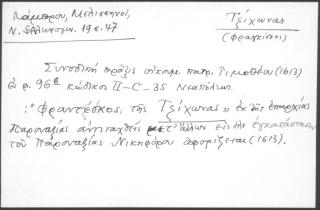 Λάμπρου, Μελισσηνοί,
Ν. Ελληνομν. 19 σ. 47
Τζίχωνας
(Φραγκίσκος)
Συνοδική πράξις οἰκουμ. πατρ. Τιμοθέου (1613)
ἀρ. 96 κώδικος II-C-35 Νεαπόλεως.
:"Φραντζέσκος, τῆς Τζίχωνας" ἐκ τῆς ἐπαρχίας
Παροναξίας ἀντιταχθείς μετ' ἄλλων εἰς τήν ἐγκατάστασιν
τοῦ Παροναξίας Νικηφόρου ἀφορίζεται (1613).